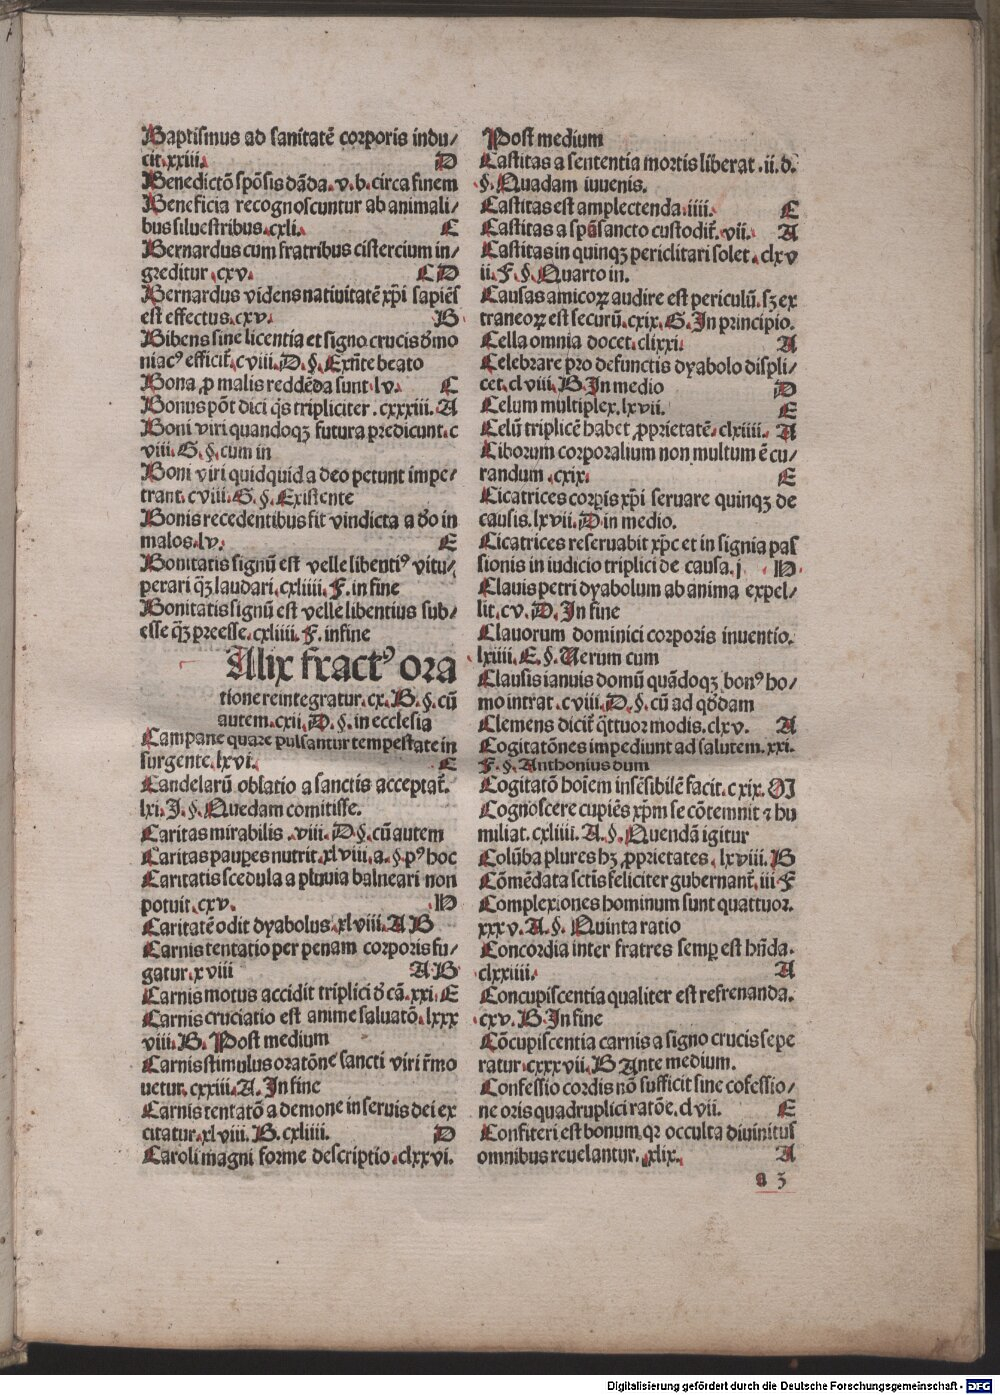 Baptismus ad sanitatē corporis indu/
cit.xxiii. D
Benedictō spōsis dāda.v.b.circa finem
Beneficia recognoscuntur ab animali/
bus siluestribus.cxli. C
Bernardus cum fratribus cistercium in/
greditur.cxv. C D
Bernardus videns natiuitatē xp̄i sapiēs
est effectus.cxv. B
Bibens sine licentia et signo crucis d̄mo
niacꝰ efficit̄.cviii.D.§.Exn̄te beato
Bona ꝓ malis reddēda sunt.lv. C
Bonus pōt dici q̄s tripliciter.cxxxiii.A
Boni viri quandoqꝫ futura predicunt.c
viii.G.§.cum in
Boni viri quidquid a deo petunt impe/
trant.cviii.G.§.Existente
Bonis recedentibus fit vindicta a d̄o in
malos.lv. E
Bonitatis signū est velle libentiꝰ vitu/
perari q̄ꝫ laudari.cxliiii.F.in fine
Bonitatis signū est velle libentius sub/
esse q̄ꝫ preesse.cxliiii.F.infine
Alix fractꝰ ora
tione reintegratur.cx.B.§.cū
autem.cxii.D.§.in ecclesia
Campane quare pulsantur tempestate in
surgente.lxvi. E
Candelarū oblatio a sanctis acceptat̄.
lxi.J.§.Quedam comitisse.
Caritas mirabilis.viii.D.§.cū autem
Caritas paupes nutrit.xlviii.a.§.pꝰ hoc
Caritatis scedula a pluuia balneari non
potuit.cxv. N
Caritatē odit dyabolus.xlviii.A B
Carnis tentatio per penam corporis fu/
gatur.xviii A B
Carnis motus accidit triplici d̄ cā.xxi.E
Carnis cruciatio est anime saluatō.lxxx
viii.B.Post medium
Carnis stimulus oratōne sancti viri r̄mo
uetur.cxxiii.A.In fine
Carnis tentatō a demone in seruis dei ex
citatur.xlviii.B.cxliiii. D
Caroli magni forme descriptio.clxxvi.
Post medium
Castitas a sententia mortis liberat.ii.d.
§.Quadam iuuenis.
Castitas est amplectenda.iiii. C
Castitas a spū sancto custodit̄.vii. A
Castitas in quinqꝫ periclitari solet.clxv
ii.F.§.Quarto in.
Causas amicoꝝ audire est periculū.sꝫ ex
traneoꝝ est securū.cxix.G.In principio.
Cella omnia docet.clixxi. A
Celebrare pro defunctis dyabolo displi/
cet.clviii.B.In medio D
Celum multiplex.lxvii. E
Celū triplicē habet ꝓprietatē.clxiiii. A
Ciborum corporalium non multum ē cu/
randum.cxix. E
Cicatrices corpis xp̄i seruare quinqꝫ de
causis.lxvii.D in medio.
Cicatrices reseruabit xp̄c et in signia pas
sionis in iudicio triplici de causa.j N
Clauis petri dyabolum ab anima expel/
lit.cv.D.In fine
Clauorum dominici corporis inuentio.
lxiiii.E.§.Uerum cum
Clausis ianuis domū quādoqꝫ bonꝰ ho/
mo intrat.cviii.D.§.cū ad q̄dam
Clemens dicit̄ q̄ttuor modis.clxv. A
Cogitatōnes impediunt ad salutem.xxi.
F.§.Anthonius dum
Cogitatō hoīem insēsibilē facit.cxix.M
Cognoscere cupiēs xp̄m se cōtemnit ⁊ hu
miliat.cxliiii.A.§.Quendā igitur
Colūba plures hꝫ ꝓprietates.lxviii.B
Cōmēdata sctīs feliciter gubernant̄.iii F
Complexiones hominum sunt quattuor.
xxxv.A.§.Quinta ratio
Concordia inter fratres semp est hn̄da.
clxxiiii. A
Concupiscentia qualiter est refrenanda.
cxv.B.In fine
Cōcupiscentia carnis a signo crucis sepe
ratur.cxxxvii.B Ante medium.
Confessio cordis nō sufficit sine cōfessio/
ne oris quadruplici ratōe.clvii. E
Confiteri est bonum qr occulta diuinitus
omnibus reuelantur.xlix. A
a 3
Digitalisierung gefördert durch die Deutsche Forschungsgemeinschaft - DFG